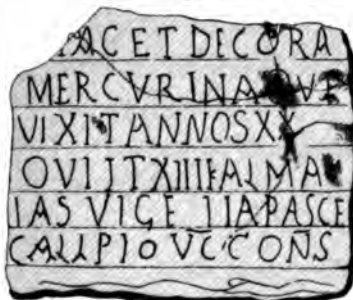 IACET DECORA
MERCVRINA QVE
VIXIT ANNOS XX
OVIITXIIIIKALMA
IAS VIGE IIA PASCE
CALLPIO VC CONS